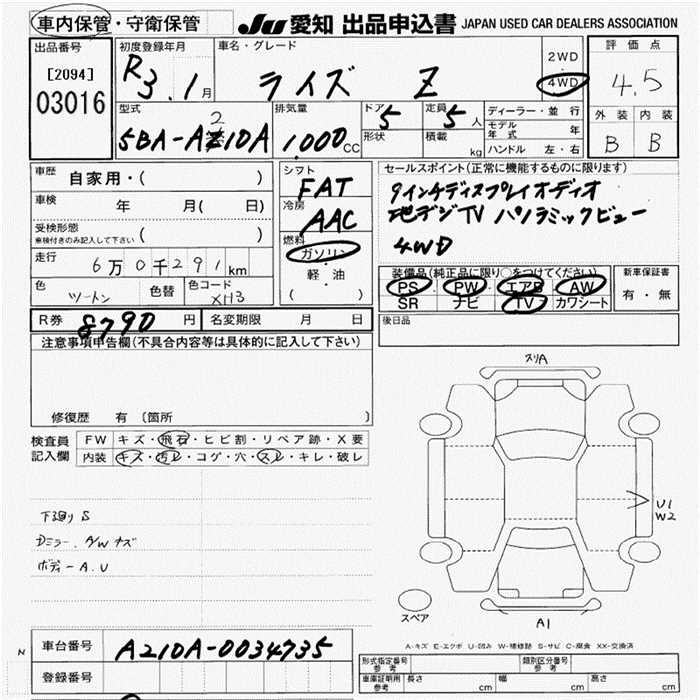 車内保管・守衛保管
JU 愛知 出品申込書 JAPAN USED CAR DEALERS ASSOCIATION
出品番号
[2094]
03016
初度登録年月
R3.1月
車名・グレード
ライズ Z
2WD
4WD
評価点
4.5
外装 内装
B B
型式
5BA-A210A
排気量
1.000cc
ドア 5
形状
定員 5人
積載 kg
ディーラー・並行
モデル年式 年
ハンドル 左・右
車歴
自家用・( )
車検 年 月( 日)
受検形態
車検付きのみ記入して下さい ( )
走行 6万0千291km
色 ツートン 色替 色コード XH3
シフト
FAT
冷房
AAC
燃料
ガソリン
・
軽油
( )
セールスポイント(正常に機能するものに限ります)
9インチディスプレイオーディオ
地デジTV パノラミックビュー
4WD
装備品(純正品に限り○をつけてください)
PS PW エアB AW
SR ナビ TV カワシート
新車保証書
有・無
R券 8790円 名変期限 月 日
後日品
注意事項申告欄(不具合内容等は具体的に記入して下さい)
修復歴 有 〔箇所 〕
検査員記入欄
FW キズ・飛石・ヒビ割・リペア跡・X要
内装 キズ・汚レ・コゲ・穴・スレ・キレ・破レ
下廻り S
Dミラー、A/W キズ
ボディー A.U
スリA
U1
W2
スペア
A1
A-キズ E-エクボ U-凹み W-補修跡 S-サビ C-腐食 XX-交換済
N
車台番号 A210A-0034735
登録番号
形式指定番号 参考
類別区分番号 参考
車庫証明用 参考 長さ cm 幅 cm 高さ cm